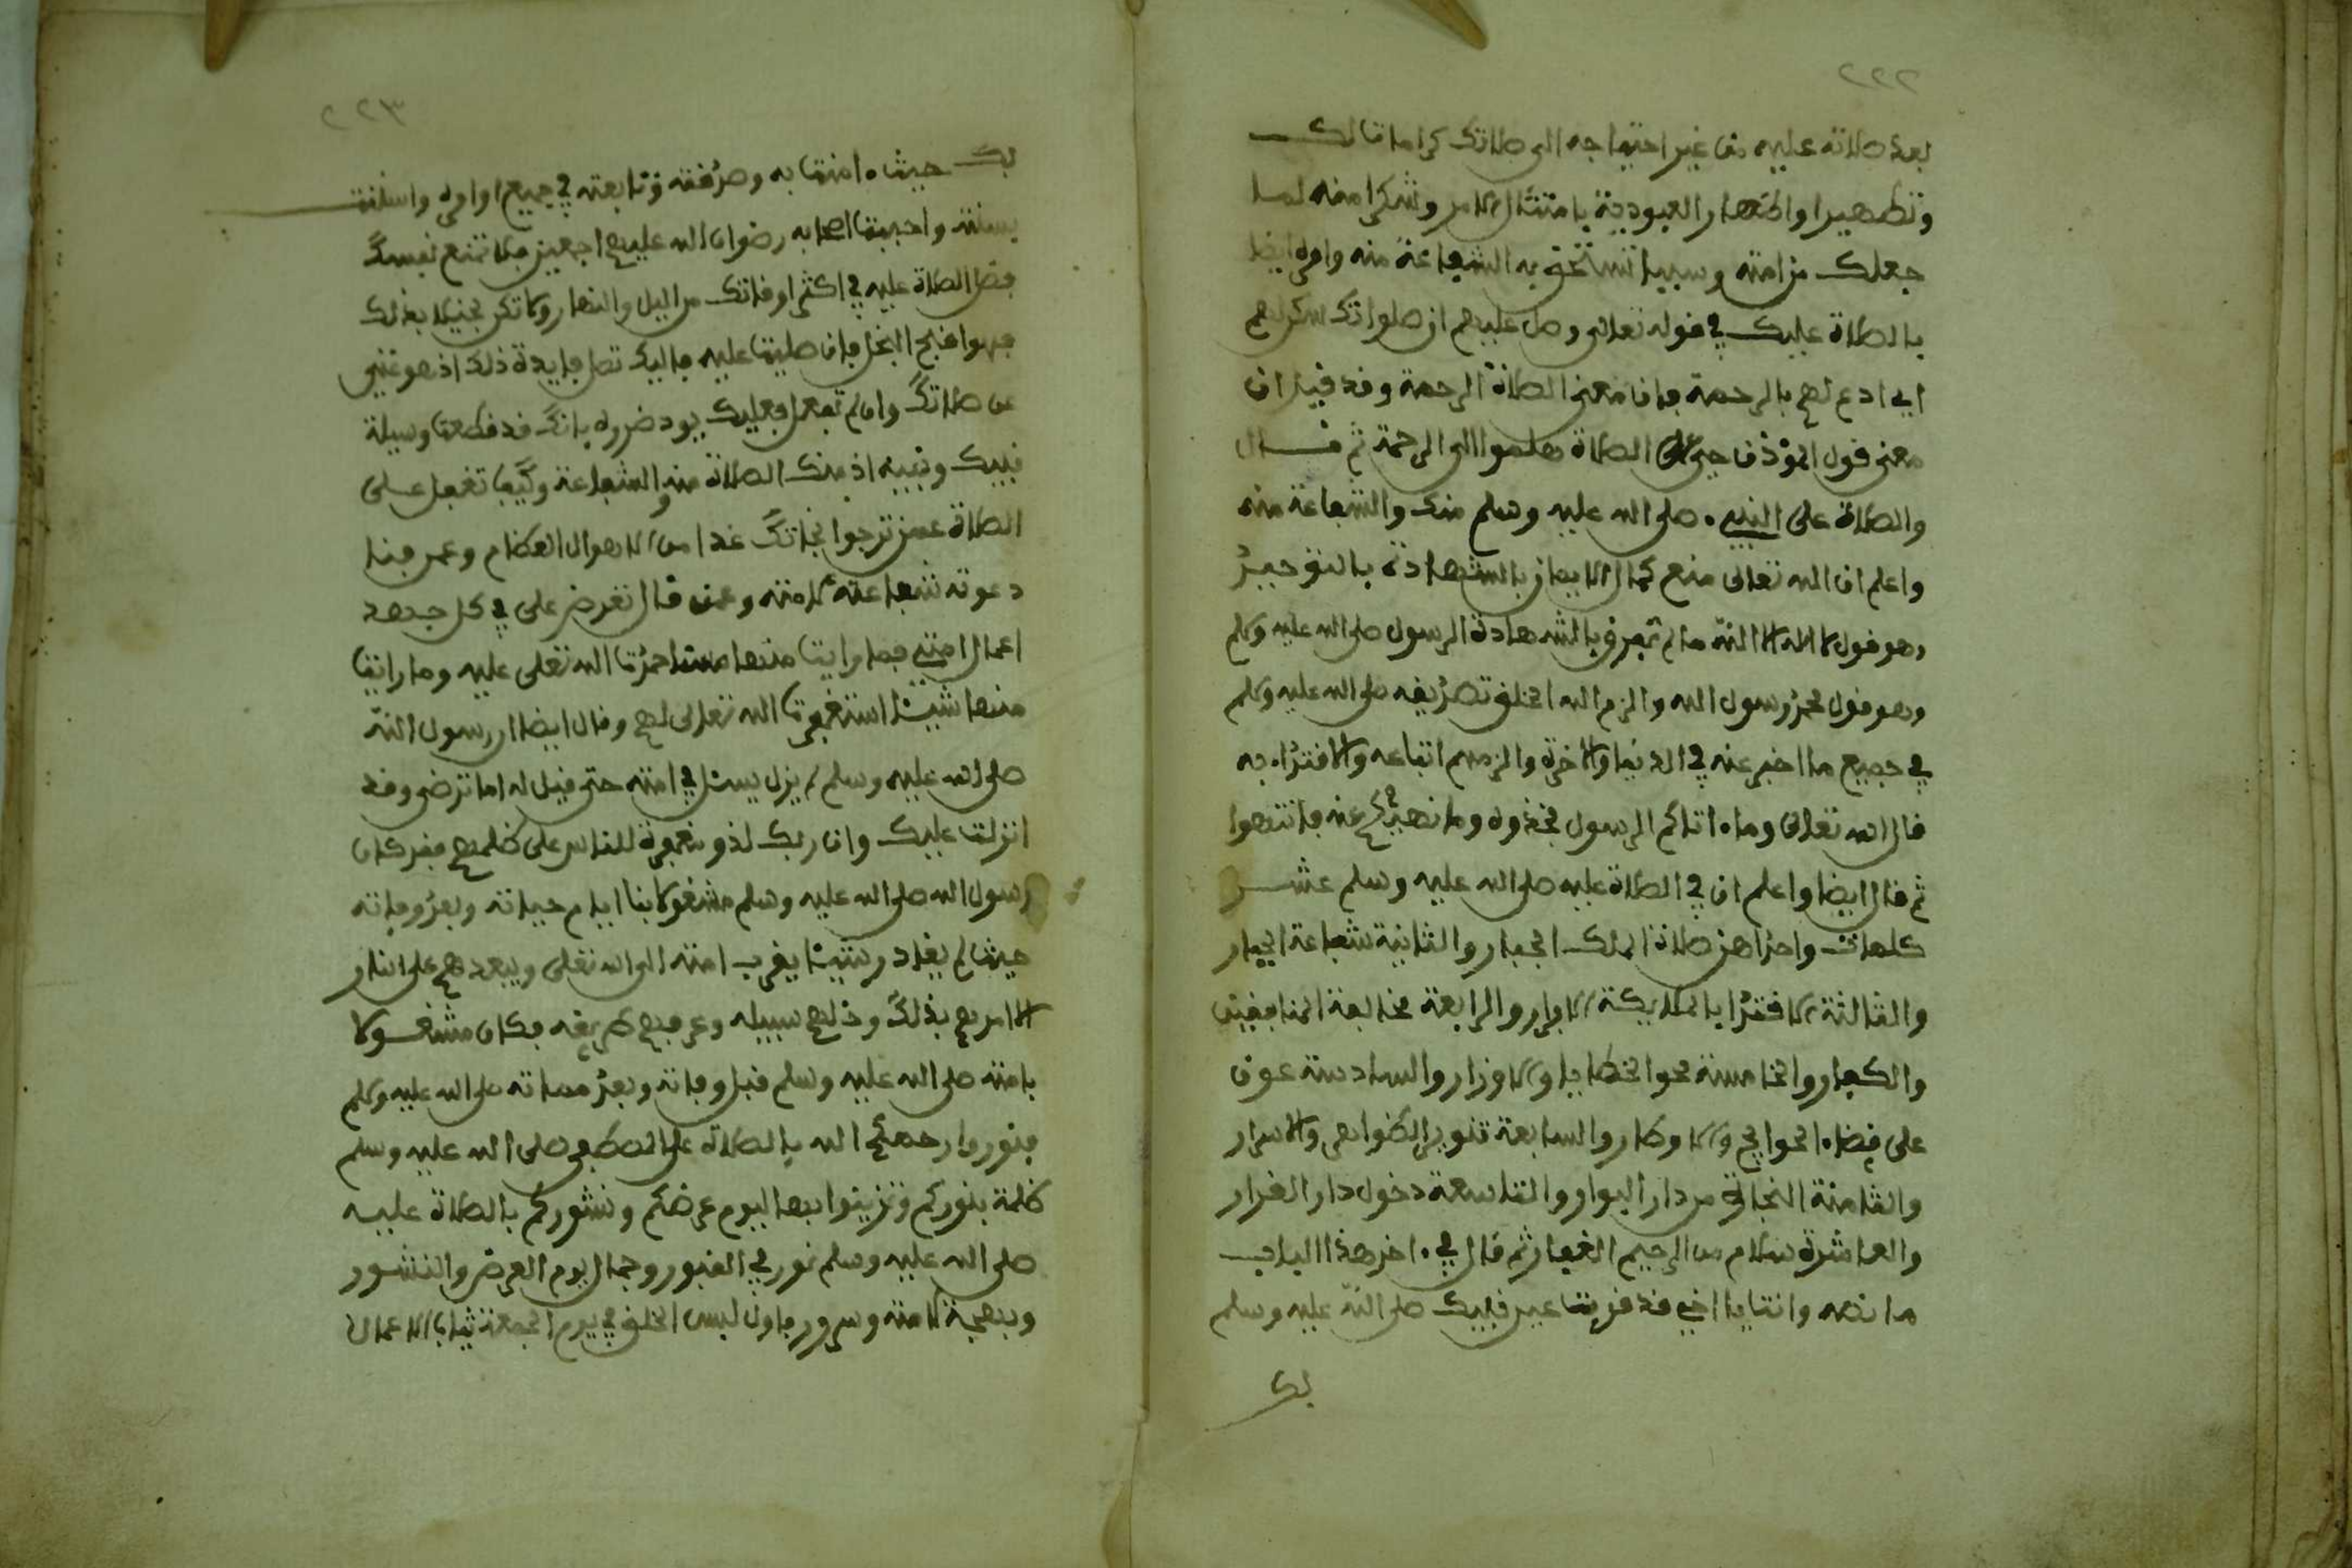 ٢٢٢
بعد صلاته عليه من غير احتياجه الى صلاتك كراماتا لك
وتطهيرا واظهار العبودية بامتثال الامر وشكرا منه لما
جعلك من امته وسببا تستحق به الشفاعة منه وامره ايضا
بالصلاة عليك في قوله تعالى وصل عليهم ان صلواتك سكن لهم
اي ادع لهم بالرحمة فان معنى الصلاة الرحمة وقد قيل ان
معنى قول المؤذن حي على الصلاة هلموا الى الرحمة ثم قال
والصلاة على النبي صلى الله عليه وسلم منك والشفاعة منه
واعلم ان الله تعالى منع كمال الايمان بالشهادة بالتوحيد
وهو قول لا اله الا الله ما لم تقرن بالشهادة الرسول صلى الله عليه وسلم
وهو قول محمد رسول الله والزم الله الخلق تصديقه صلى الله عليه وسلم
في جميع ما اخبر عنه في الدنيا والاخرة والزمهم اتباعه والاقتداء به
قال الله تعالى وما ءاتاكم الرسول فخذوه وما نهيكم عنه فانتهوا
ثم قال ايضا واعلم ان في الصلاة عليه صلى الله عليه وسلم عشر
كلمات واحداهن صلاة الملك الجبار والثانية شفاعة المختار
والثالثة الاقتدا بالملايكة الابرار والرابعة مخالفة المنافقين
والكفار والخامسة محو الخطايا والاوزار والسادسة عون
على قضاء الحوايج والاوطار والسابعة تنوير الظواهر والاسرار
والثامنة النجاة من دار البوار والتاسعة دخول دار القرار
والعاشرة سلام من الرحيم الغفار ثم قال في ءاخر هذا الباب
ما نصه وانت يا اخي قد قربت عين نبيك صلى الله عليه وسلم
بك
٢٢٣
بك حيث ءامنت به وصدقته وتابعته في جميع اوامره واستنت
بسنته واحببت اصحابه رضوان الله عليهم اجمعين فلا تمنع نفسك
فضل الصلاة عليه في اكثر اوقاتك من اليل والنهار ولا تكن بخيلا بذلك
فهو اقبح البخل فان صليت عليه فاليك تصل فايدة ذلك اذ هو غني
عن صلاتك وان لم تفعل فعليك يعود ضرره بانك قد قطعت وسيلة
نبيك ونبيه اذ منك الصلاة ومنه الشفاعة وكيف تغفل على
الصلاة عمن ترجوا نجاتك غدا من الاهوال العظام وعمن جبا
دعوته شفاعة لامته وعمن قال تعرض علي في كل جمعة
اعمال امتي فما رايت منها حسنا حمدت الله تعلى عليه وما رايت
منها شيئا استغفرت الله تعالى لهم وقال ايضا ان رسول الله
صلى الله عليه وسلم لم يزل يسئل في امته حتى قيل له اما ترضى وقد
انزلت عليك وان ربك لذو مغفرة للناس على ظلمهم فقد كان
رسول الله صلى الله عليه وسلم مشغولا بنا ايام حياته وبعد وفاته
حيث لم يغادر شيئا يقرب امته الى الله تعلى ويبعدهم على النار
الا امرهم بذلك ودلهم سبيله وعرفهم طريقه فكان مشغولا
بامته صلى الله عليه وسلم قبل وفاته وبعد مماته صلى الله عليه وسلم
فنوروا رحمكم الله بالصلاة على المصطفى صلى الله عليه وسلم
ظلمة بنوركم وتزينوا بها اليوم عرضكم ونشوركم بالصلاة عليه
صلى الله عليه وسلم نور في القبور وجمال يوم العرض والنشور
وبهجة لامته وسرور فاول لبس الخلق في يوم الجمعة ثياب الاعمال